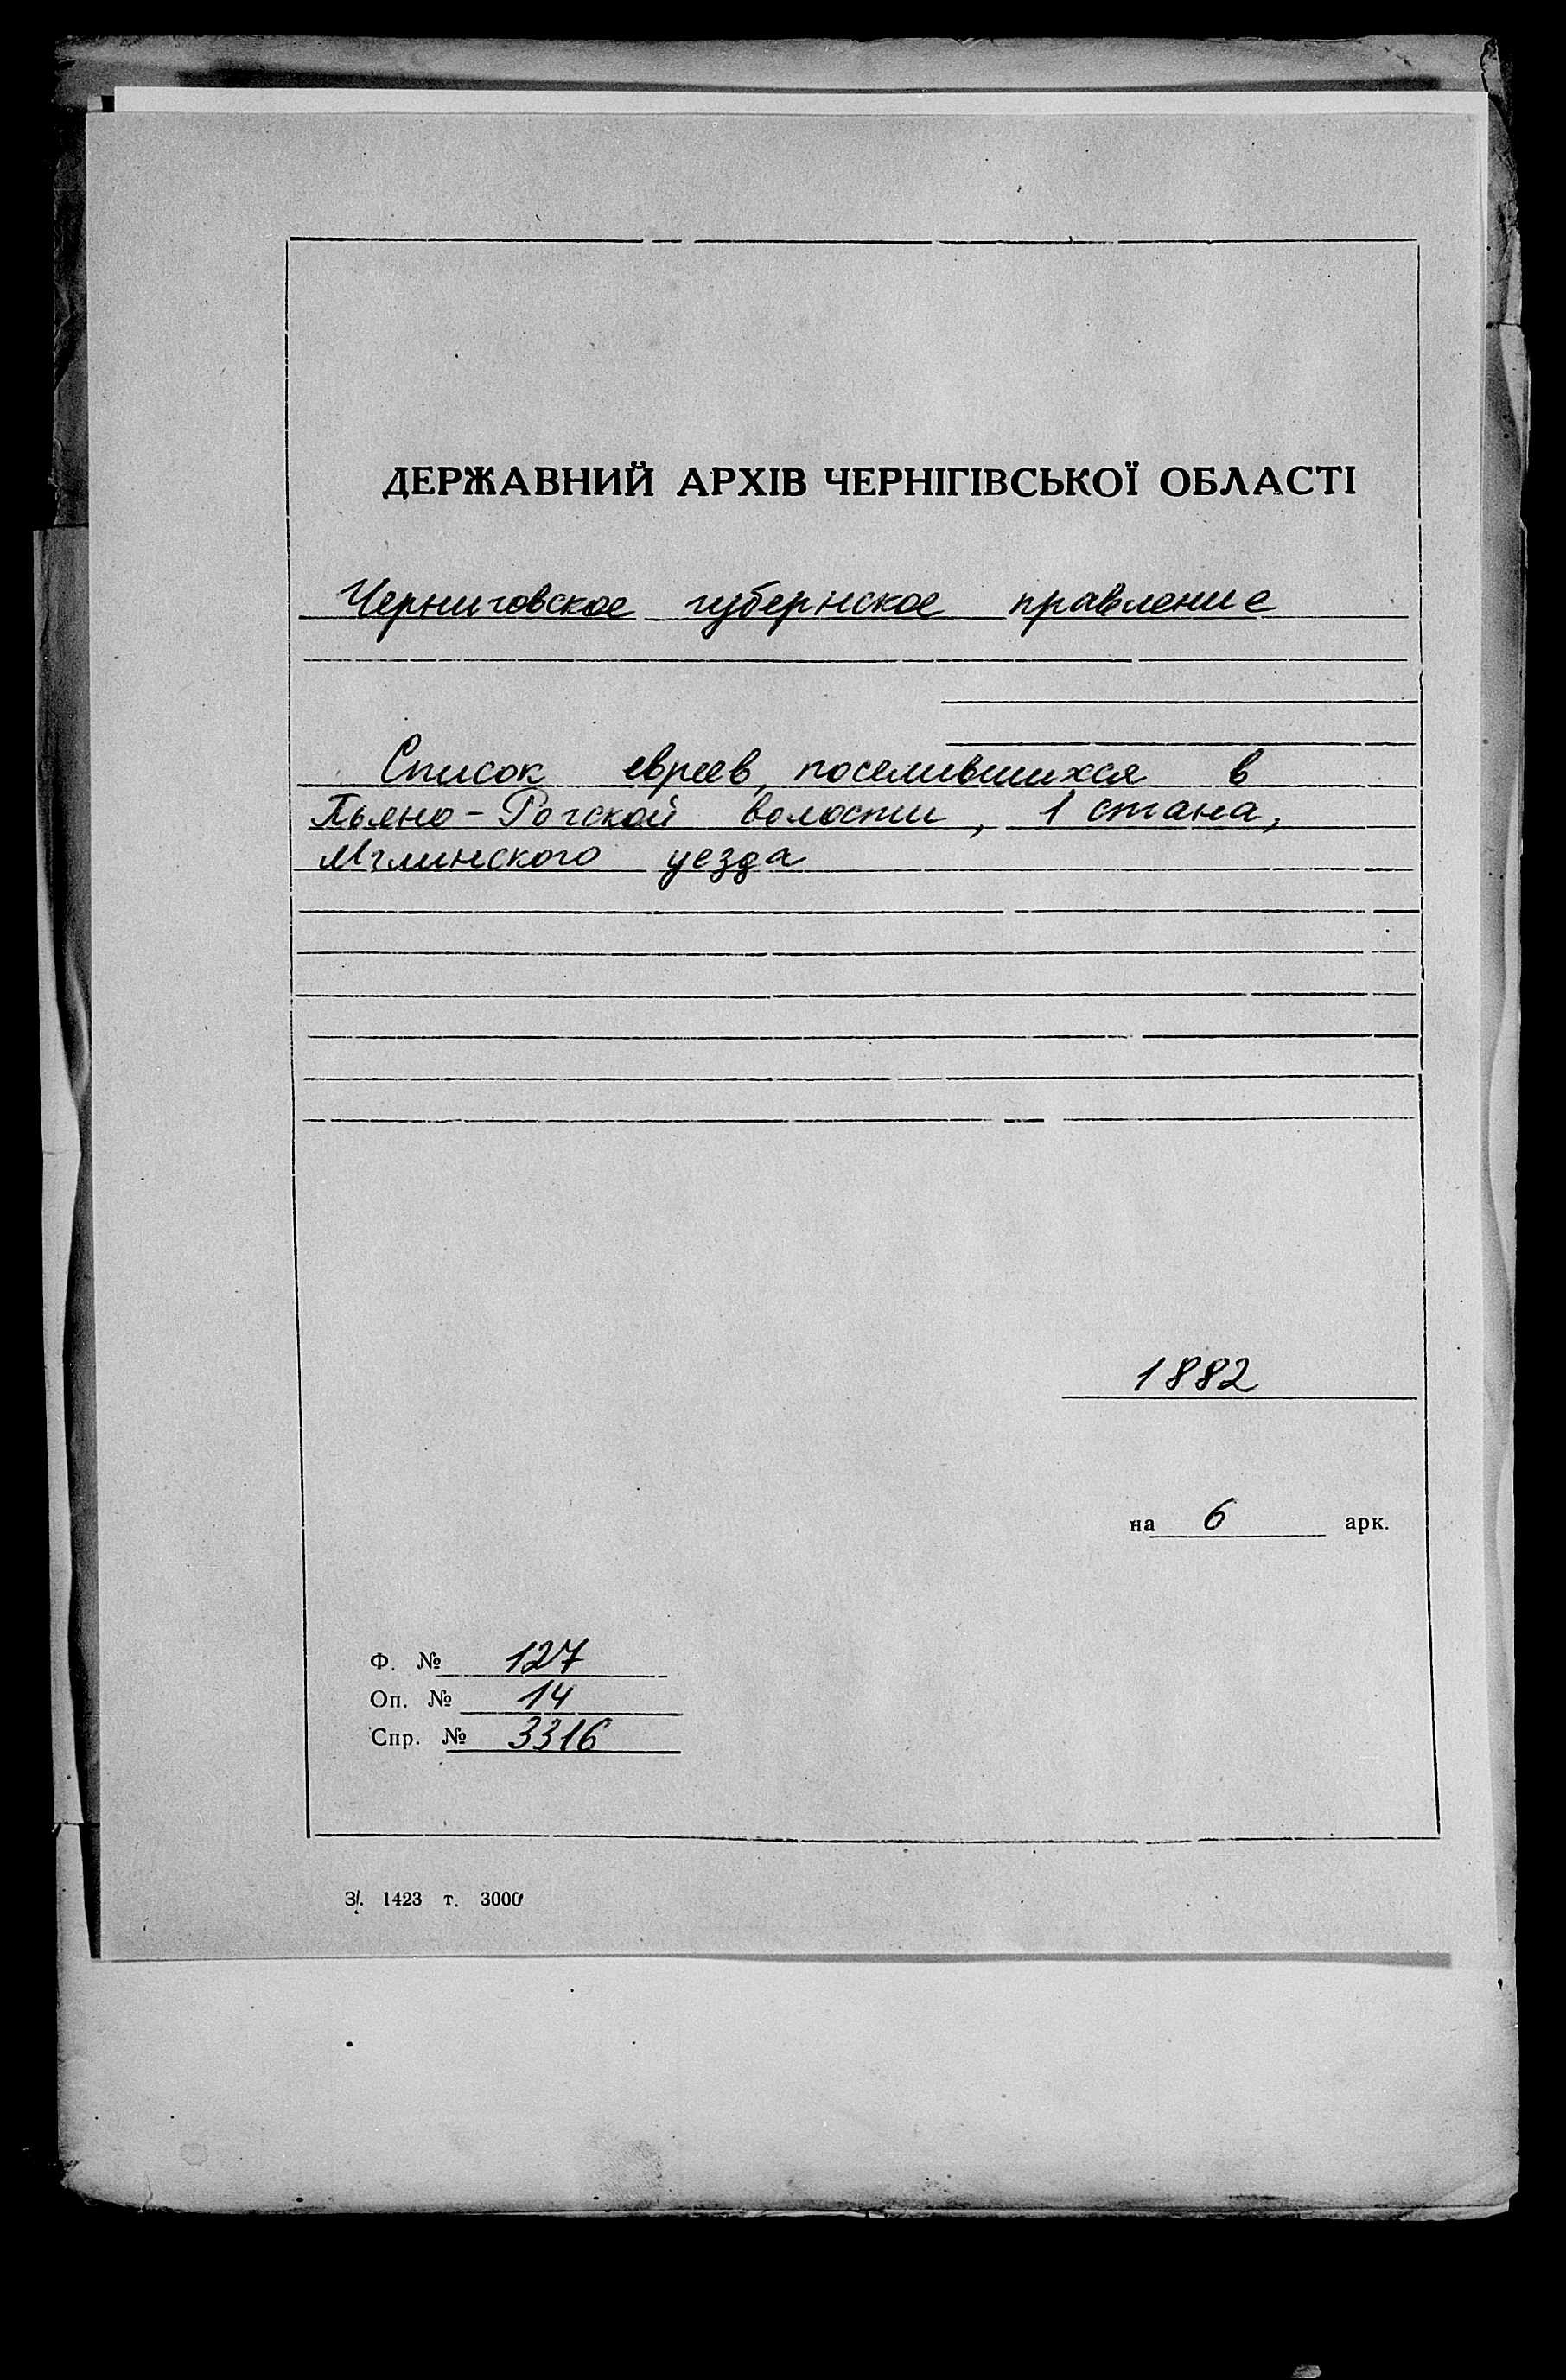 ДЕРЖАВНИЙ АРХІВ ЧЕРНІГІВСЬКОЇ ОБЛАСТІ
Черниговское губернское правление
Список евреев, поселившихся в
Пьяно-Рогской волости, 1 стана,
Мглинского уезда
1882
на 6 арк.
Ф. № 127
Оп. № 14
Спр. № 3316
З. 1423 т. 3000